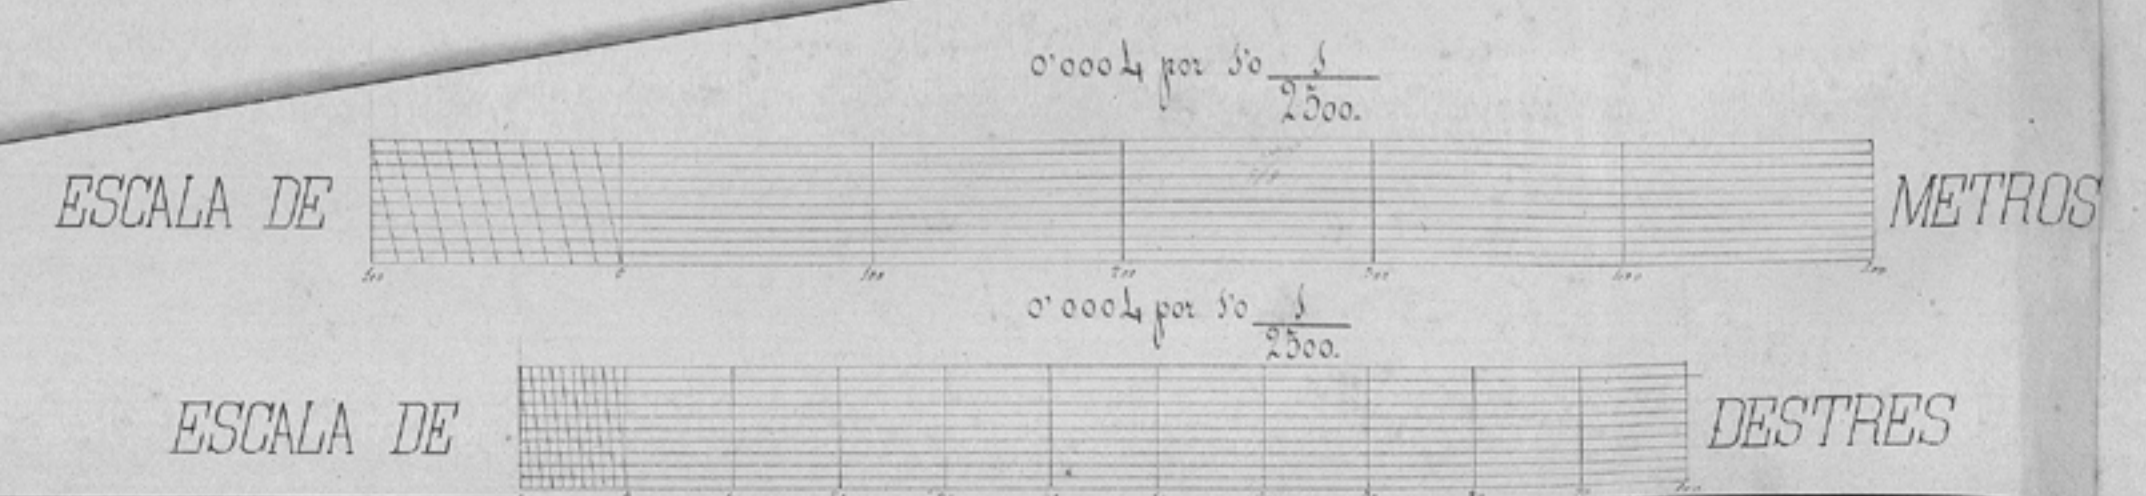 0'0004 por 1'0 1/2500.
ESCALA DE METROS
100 0 100 200 300 400 500
0'0004 por 1'0 1/2500.
ESCALA DE DESTRES